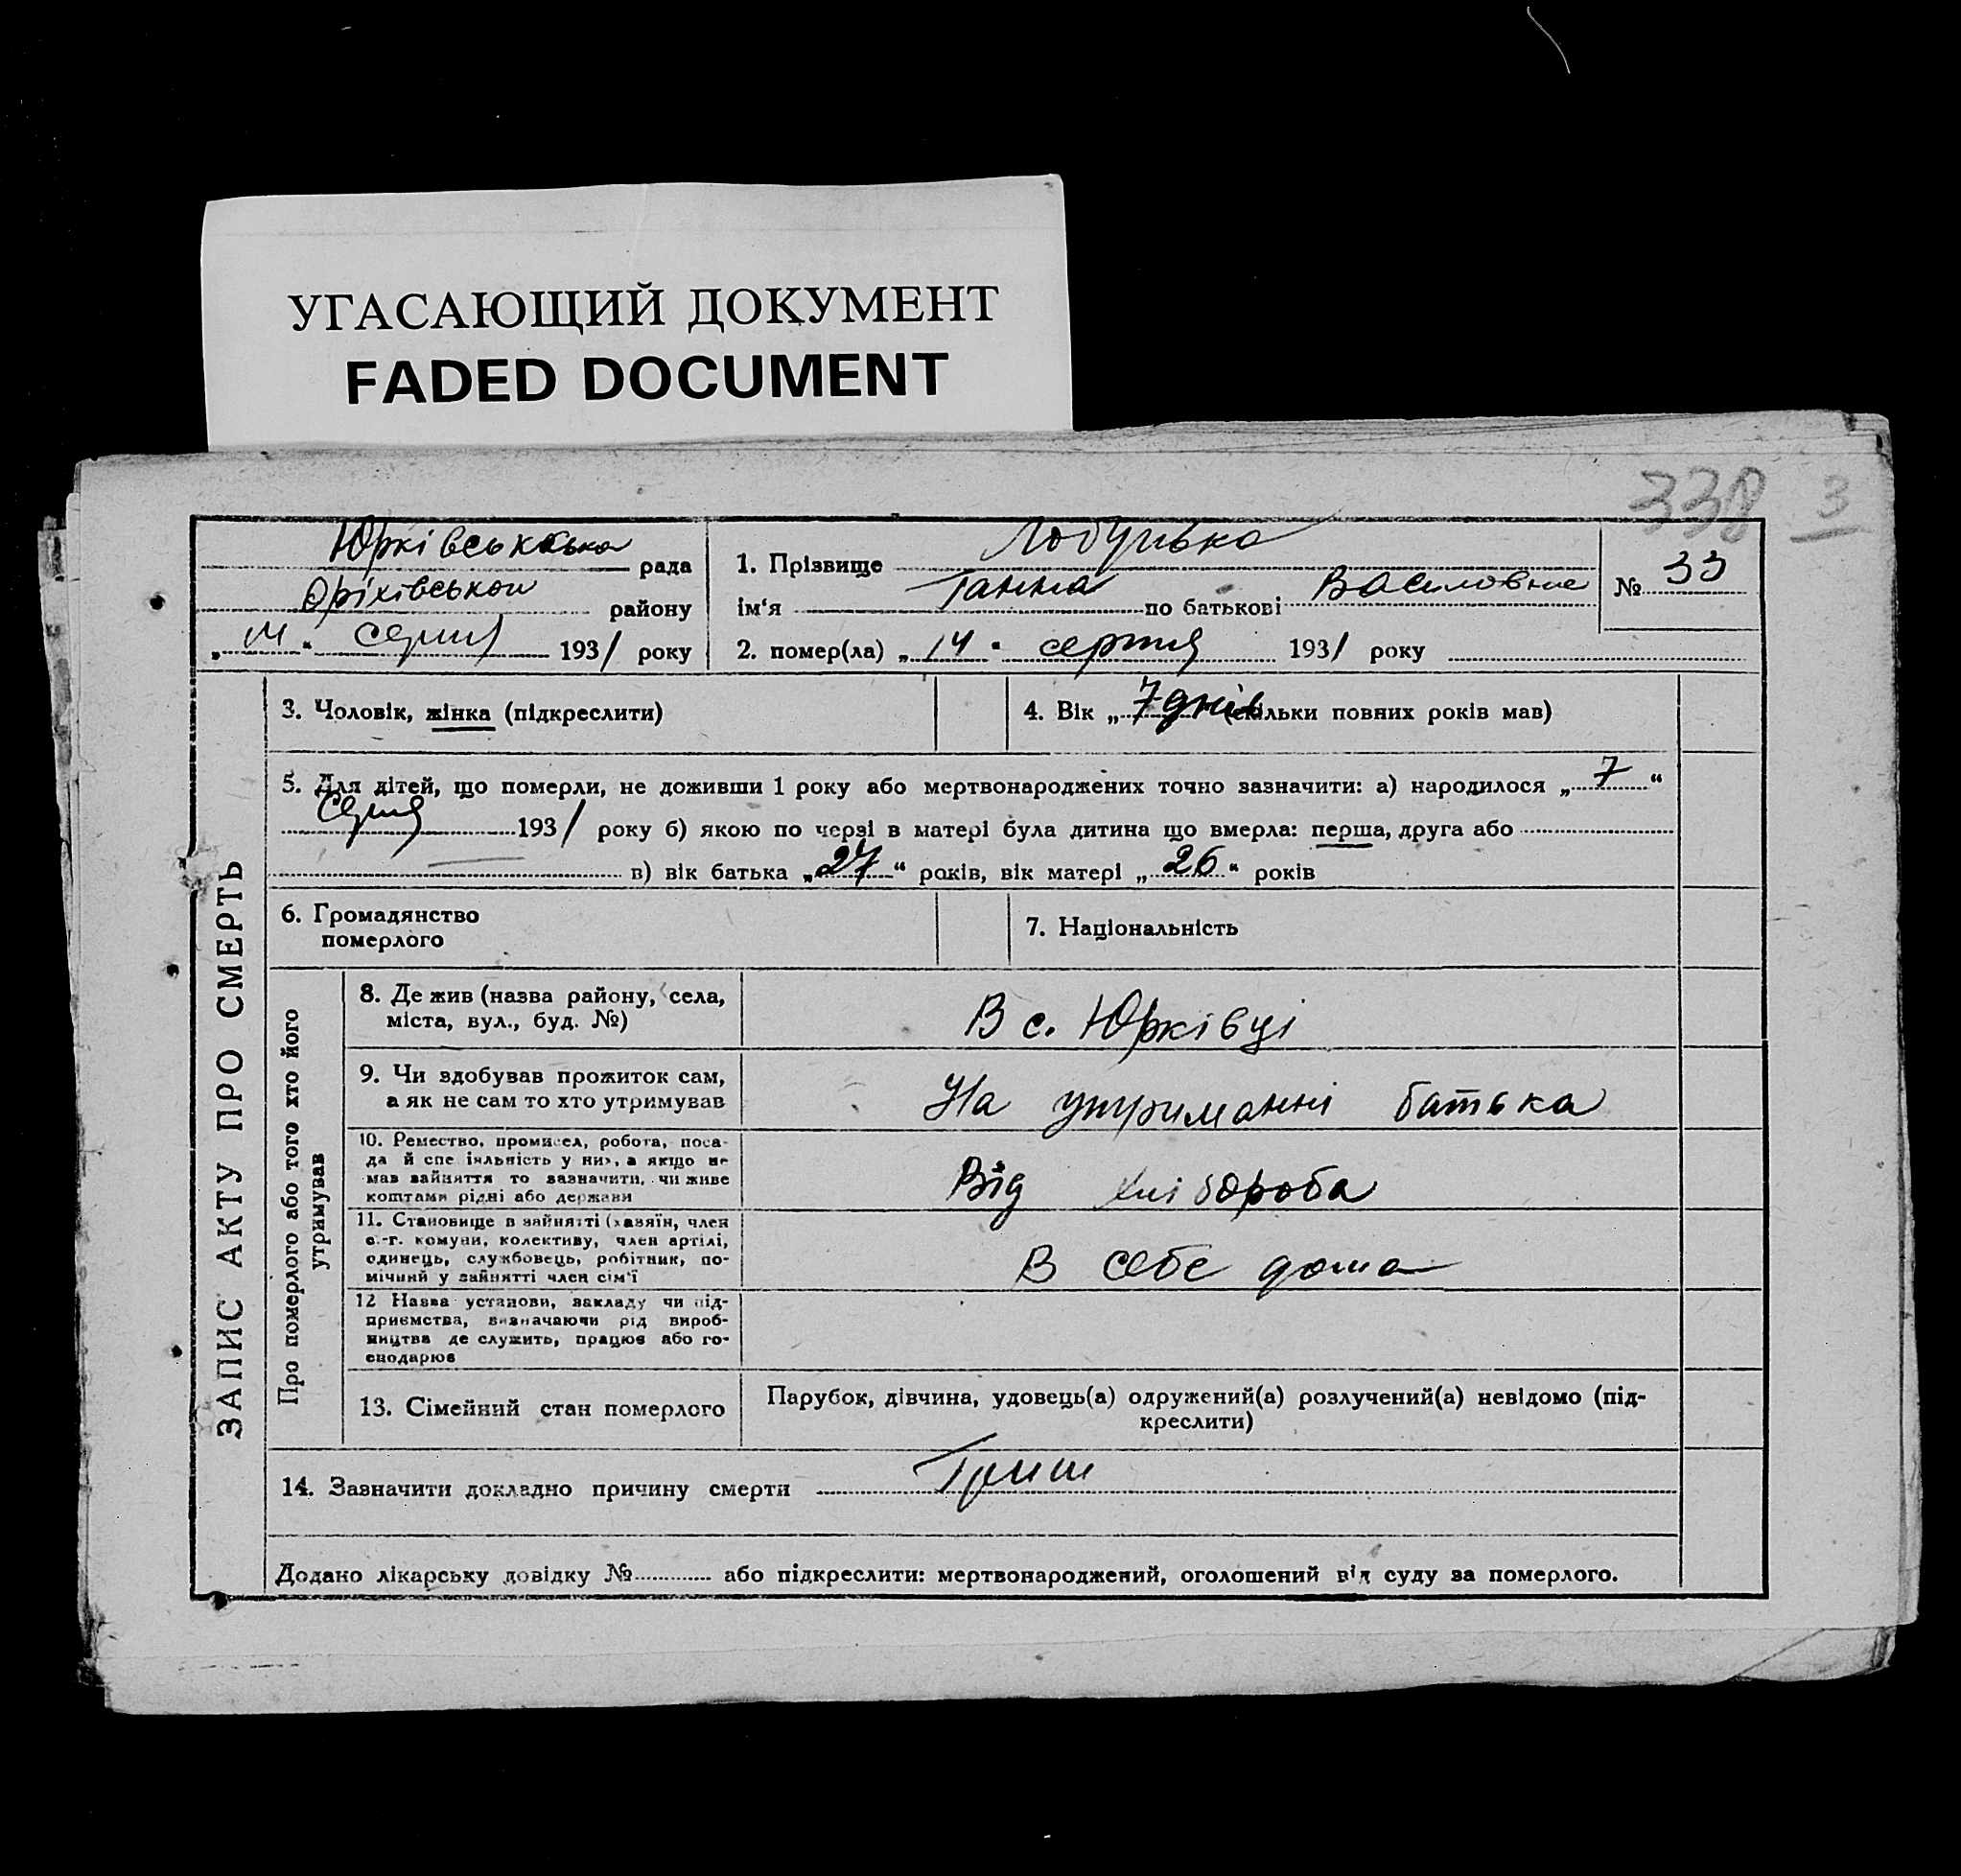 УГАСАЮЩИЙ ДОКУМЕНТ
FADED DOCUMENT
338 3
Юрківська рада
Оріхівського району
„14“ серпня 1931 року
1. Прізвище
ім‘я Ганна по батькові Василовна
№ 33
2. помер(ла) „14“ серпня 1931 року
ЗАПИС АКТУ ПРО СМЕРТЬ
3. Чоловік, жінка (підкреслити)
4. Вік „7 днів (скільки повних років мав)
5. Для дітей, що померли, не доживши 1 року або мертвонароджених точно зазначити: а) народилося „7“
серпня 1931 року б) якою по черзі в матері була дитина що вмерла: перша, друга або
в) вік батька „27“ років, вік матері „26“ років
6. Громадянство
померлого
7. Національність
Про померлого або того хто його
утримував
8. Де жив (назва району, села,
міста, вул., буд. №)
В с. Юрківці
9. Чи здобував прожиток сам,
а як не сам то хто утримував
На утриманні батька
10. Ремество, промисел, робота, поса-
да й спеціяльність у них, а якщо не
мав зайняття то зазначити, чи живе
коштами рідні або держави
Від хлібороба
11. Становище в зайнятті (хазяїн, член
с.-г. комуни, колективу, член артілі,
одинець, службовець, робітник, по-
мічний у зайнятті член сім‘ї
В себе дома
12 Назва установи, закладу чи під-
приємства, визначаючи рід вироб-
ництва де служить, працює або го-
сподарює
13. Сімейний стан померлого
Парубок, дівчина, удовець(а) одружений(а) розлучений(а) невідомо (під-
креслити)
14. Зазначити докладно причину смерти
Додано лікарську довідку № або підкреслити: мертвонароджений, оголошений від суду за померлого.